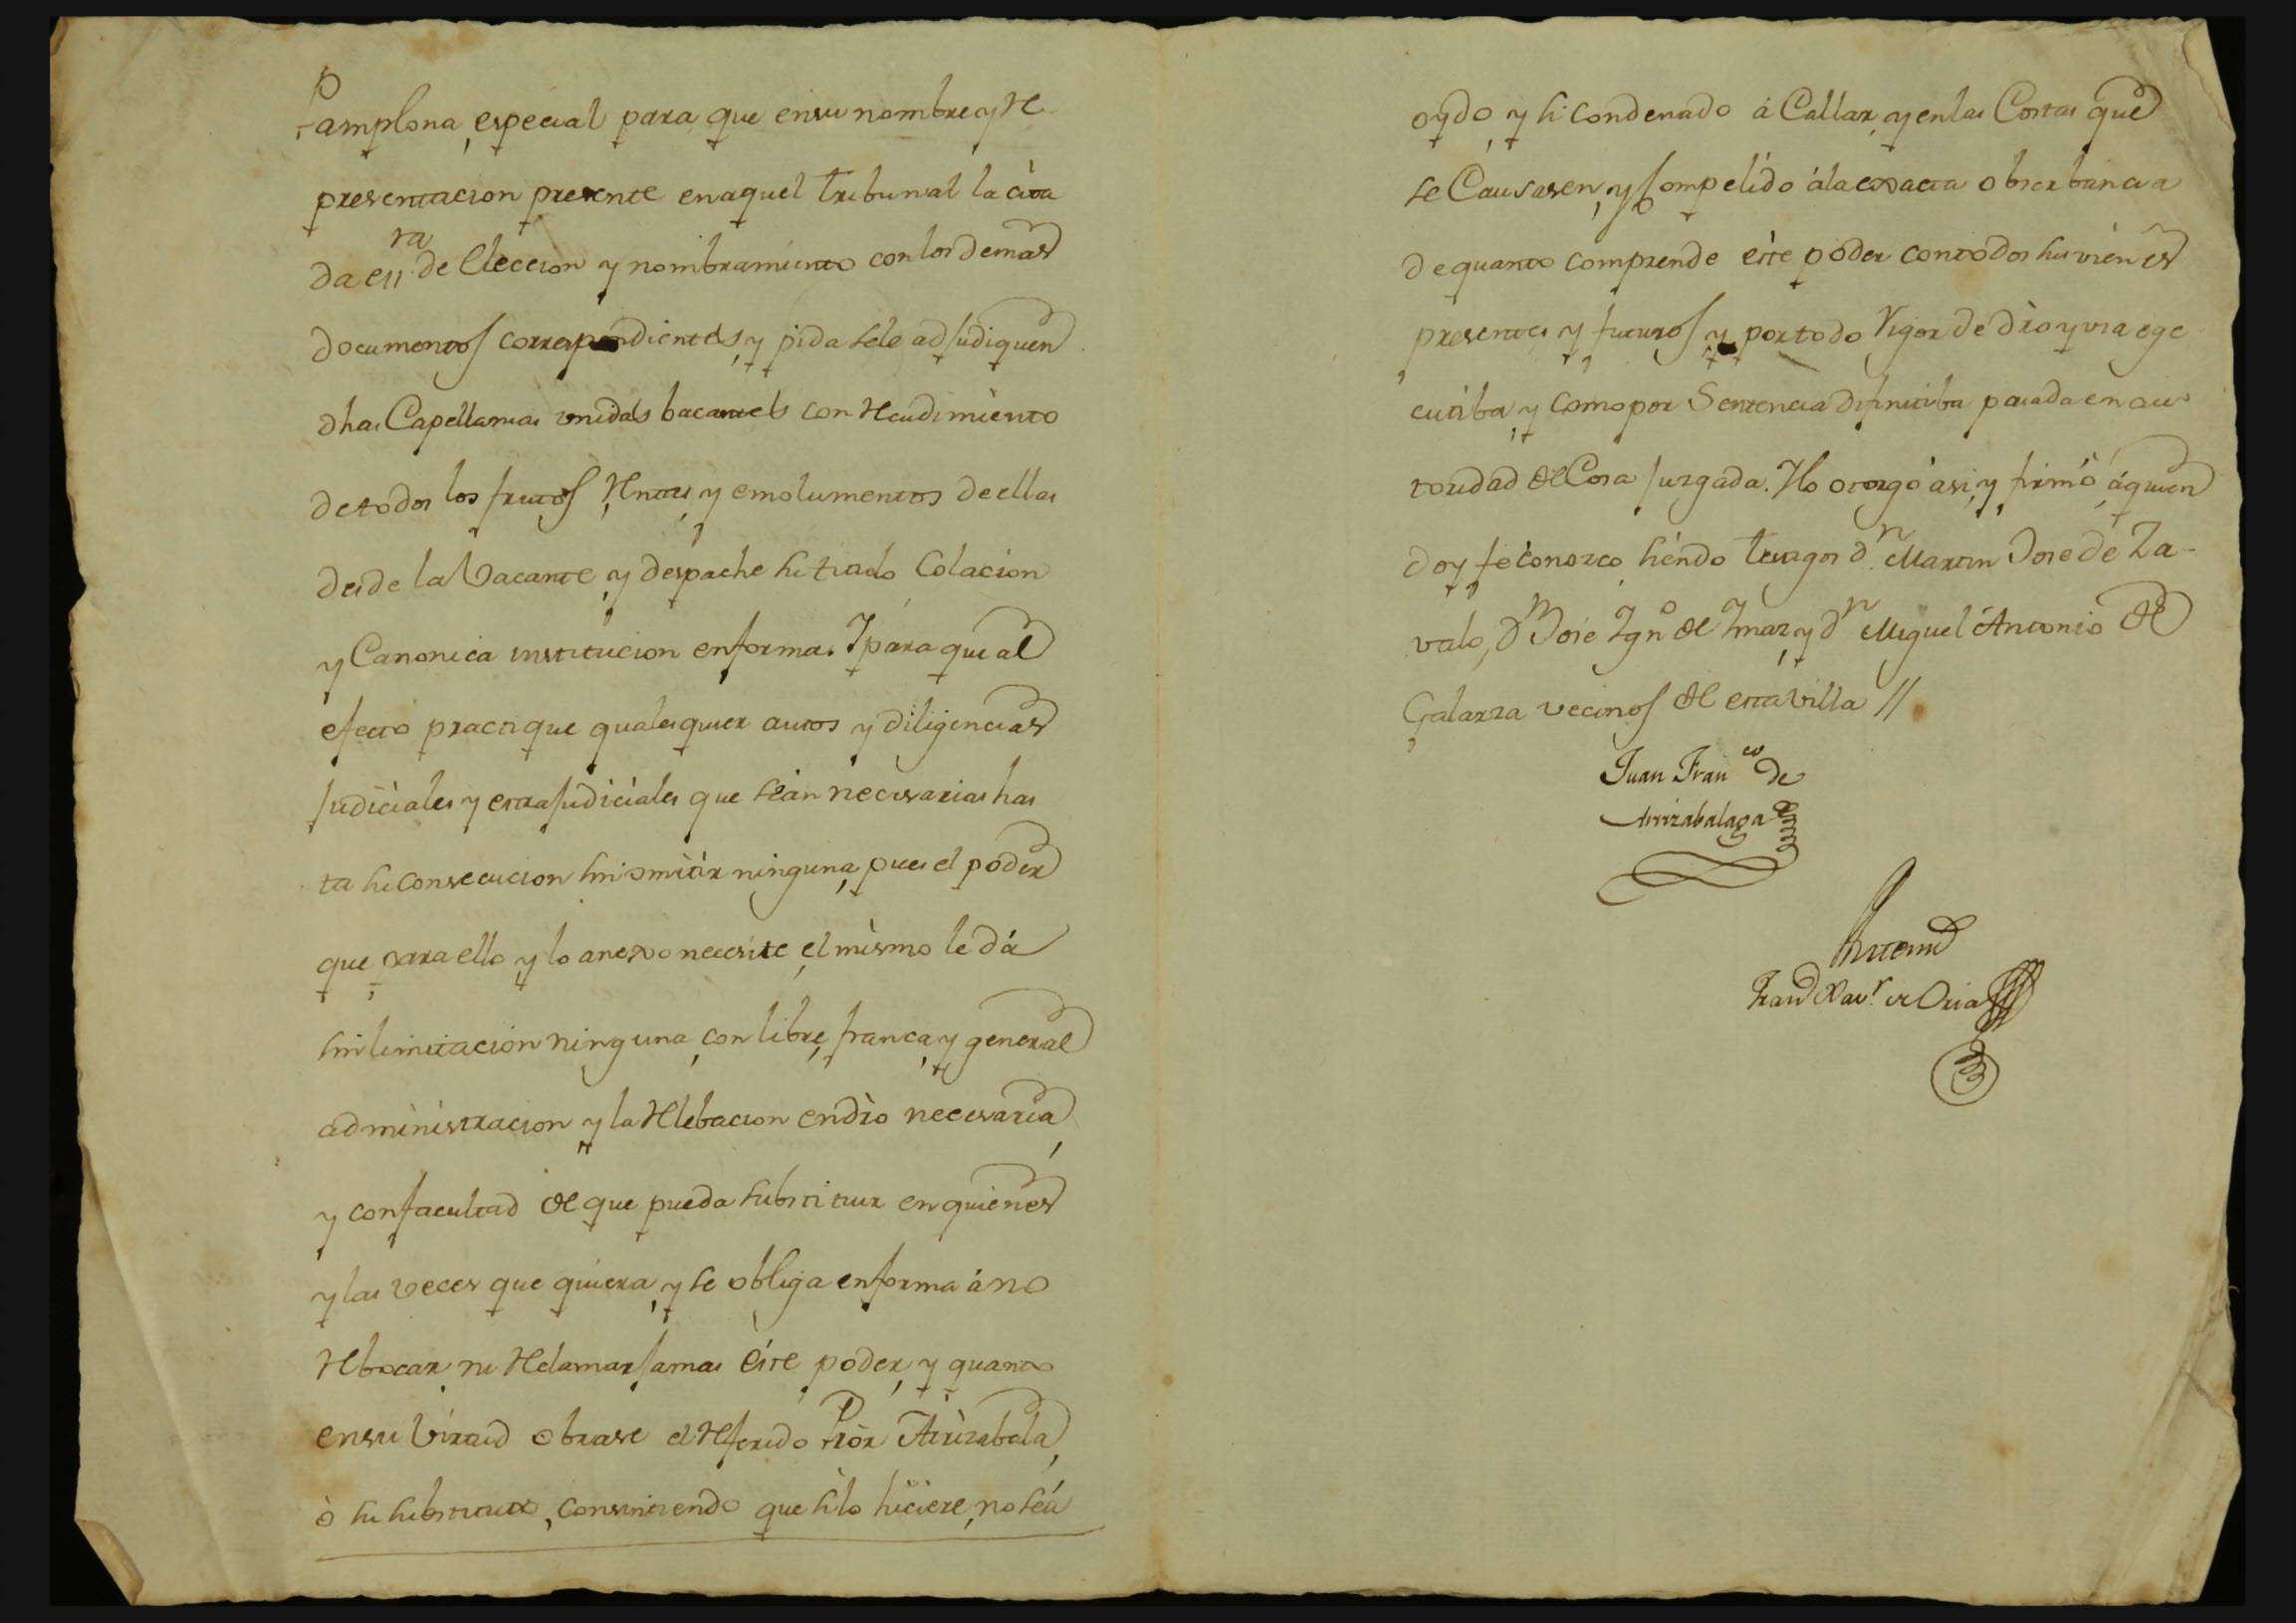 Pamplona, especial para que en su nombre y re
presentacion presente en aquel tribunal la cita
da essra de eleccion y nombramiento con los demas
documentos correspondientes, y pida se le adjudiquen
dhas Capellanias unidas bacantes con recudimiento
de todos los frutos, rentas, y emolumentos de ellas
desde la Vacante, y despache su titulo, Colacion
y Canonica institucion en forma. Y para que al
efecto practique qualesquier autos y diligencias
judiciales y extrajudiciales que seàn necesarias has
ta su consecucion sin omitir ninguna, pues el poder
que para ello y lo anexo necesite, el mismo le dá
sin limitacion ninguna, con libre, franca, y general
administracion y la relebacion en dro necesaria,
y con facultad de que pueda substituir en quienes
y las veces que quiera, y se obliga en forma á no
rebocar ni reclamar jamas éste poder, y quanto
en su virtud obrase el referido Prior Arrizabala,
ò su substituto, consintiendo que si lo hiciere, no seá
oydo, y si condenado á Callar, y en las Costas que
se Causasen, y Compelido á la exacta obserbancia
de quanto comprende éste poder con todos sus viènes
presentes y futuros, y por todo Vigor de dro y via ege
cutiba, y como por Sentencia difinitiba pasada en au
toridad de Cosa juzgada. Ylo otorgó asi, y firmó, á quien
doy fé conozco, siéndo testigos dn Martin Jose de Za-
valo, dn Jose Ygno de Ymaz, y dn Miguel Antonio de
Galarza vecinos de esta villa //
Juan Franco de
Arrizabalaga
Ante mi
Franco Xavr de Oria